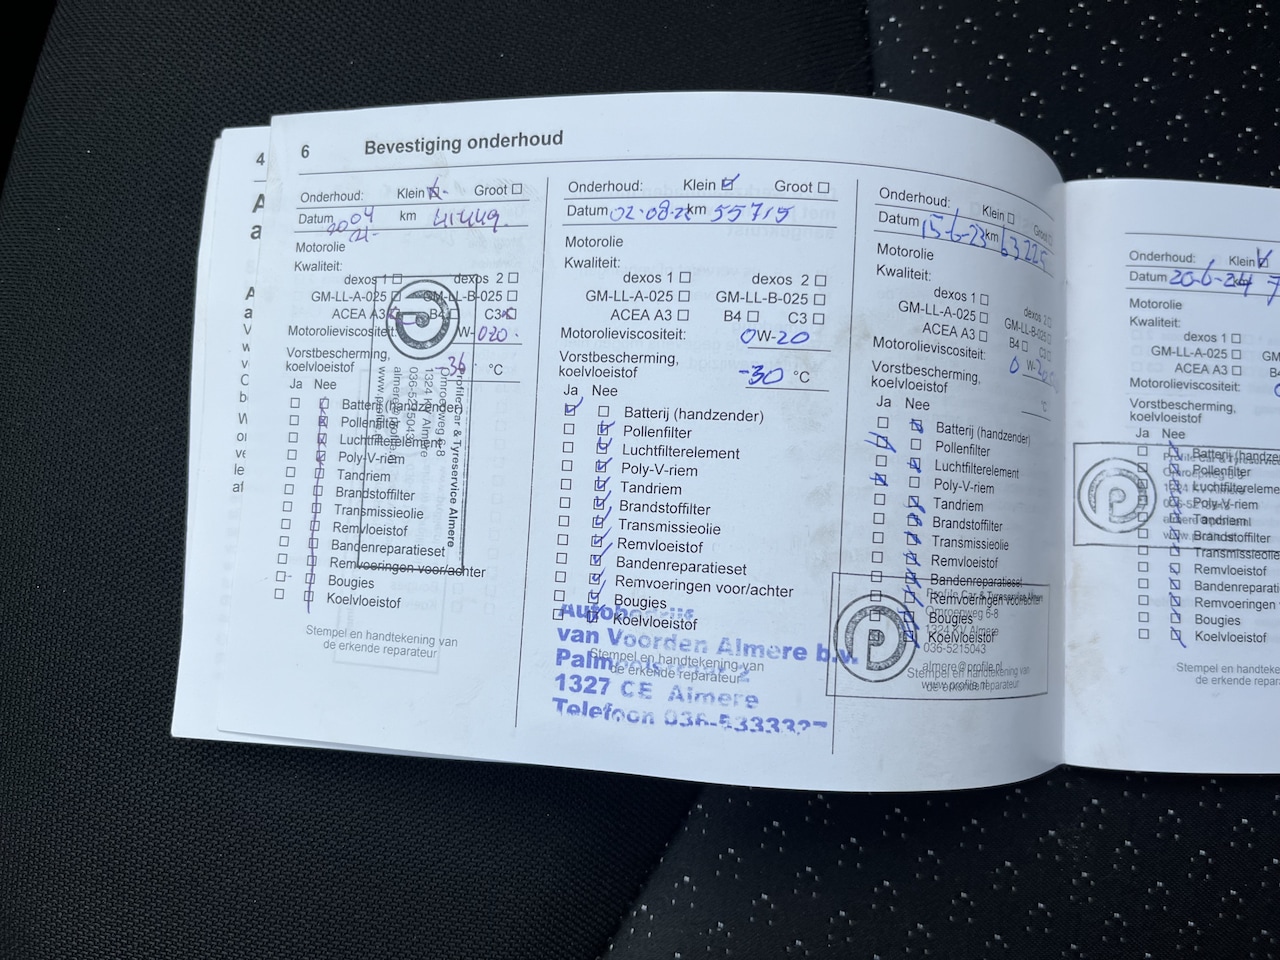 4
A
a
6 Bevestiging onderhoud
Onderhoud: Klein Groot
Datum 20 04 21 km
Motorolie
Kwaliteit:
dexos 1 dexos 2
GM-LL-A-025 GM-LL-B-025
ACEA A3 B4 C3
Motorolieviscositeit: W-020.
Vorstbescherming,
koelvloeistof 36 °C
Ja Nee
Batterij (handzender)
Pollenfilter
Luchtfilterelement
Poly-V-riem
Tandriem
Brandstoffilter
Transmissieolie
Remvloeistof
Bandenreparatieset
Remvoeringen voor/achter
Bougies
Koelvloeistof
Stempel en handtekening van
de erkende reparateur
Profile Car & Tyreservice Almere
Omroepweg 6-8
1324 KV Almere
036-5215043
almere@profile.nl
www.profile.nl
Onderhoud: Klein Groot
Datum 02-08-22 km 55715
Motorolie
Kwaliteit:
dexos 1 dexos 2
GM-LL-A-025 GM-LL-B-025
ACEA A3 B4 C3
Motorolieviscositeit: 0W-20
Vorstbescherming,
koelvloeistof -30 °C
Ja Nee
Batterij (handzender)
Pollenfilter
Luchtfilterelement
Poly-V-riem
Tandriem
Brandstoffilter
Transmissieolie
Remvloeistof
Bandenreparatieset
Remvoeringen voor/achter
Bougies
Koelvloeistof
Stempel en handtekening van
de erkende reparateur
Autobedrijf
van Voorden Almere b.v.
1327 CE Almere
Telefoon 036-5333327
Onderhoud: Klein Groot
Datum 15-6-23 km 63225
Motorolie
Kwaliteit:
dexos 1 dexos 2
GM-LL-A-025 GM-LL-B-025
ACEA A3 B4 C3
Motorolieviscositeit: 0 W-20
Vorstbescherming,
koelvloeistof °C
Ja Nee
Batterij (handzender)
Pollenfilter
Luchtfilterelement
Poly-V-riem
Tandriem
Brandstoffilter
Transmissieolie
Remvloeistof
Bandenreparatieset
Remvoeringen voor/achter
Bougies
Koelvloeistof
Stempel en handtekening van
de erkende reparateur
Profile Car & Tyreservice Almere
Omroepweg 6-8
1324 KV Almere
036-5215043
almere@profile.nl
www.profile.nl
Onderhoud: Klein
Datum 20-6-24 km 7
Motorolie
Kwaliteit:
dexos 1
GM-LL-A-025 GM
ACEA A3 B4
Motorolieviscositeit:
Vorstbescherming,
koelvloeistof
Ja Nee
Batterij (handze
Pollenfilter
Luchtfiltereleme
Poly-V-riem
Tandriem
Brandstoffilter
Transmissieolie
Remvloeistof
Bandenreparati
Remvoeringen
Bougies
Koelvloeistof
Stempel en handteke
de erkende repara